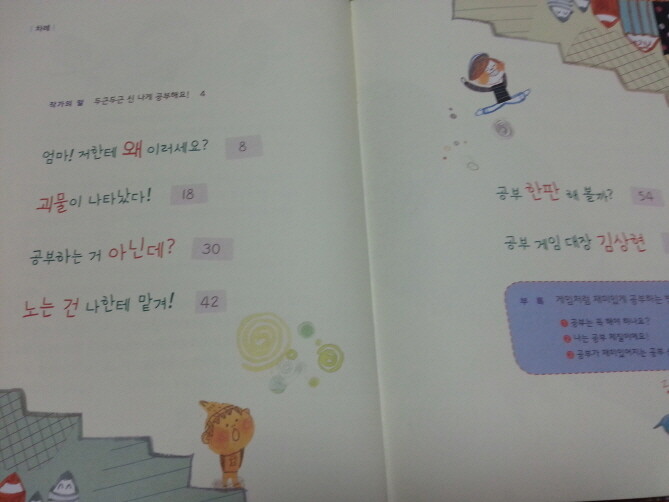 차례
작가의 말 두근두근 신 나게 공부해요! 4
엄마! 저한테 왜 이러세요? 8
괴물이 나타났다! 18
공부하는 거 아닌데? 30
노는 건 나한테 맡겨! 42
공부 한판 해 볼까? 54
공부 게임 대장 김상현
부록 게임처럼 재미있게 공부하는
1 공부는 꼭 해야 하나요?
2 나는 공부 체질이에요!
3 공부가 재미있어지는 공부